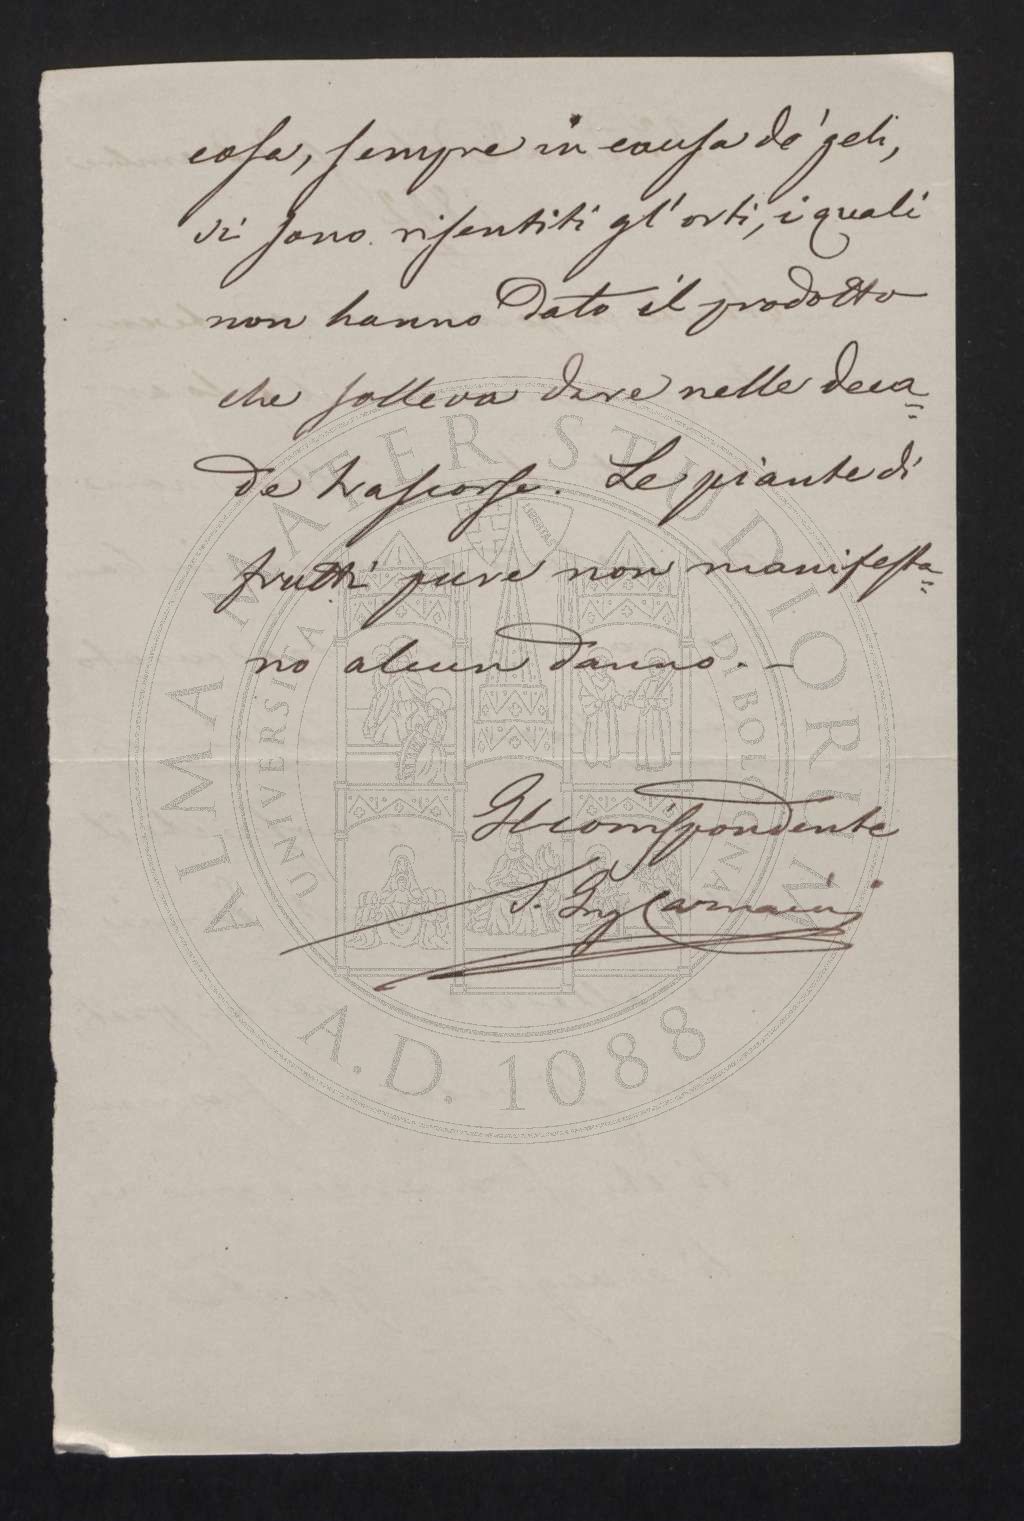 cosa, sempre in causa de' geli,
si sono risentiti gl' orti, i quali
non hanno dato il prodotto
che solleva dare nelle deca=
de trascorse. Le piante di
frutti pure non manifesta=
no alcun danno. —
Il corrispondente
Ing Carmaini
ALMA MATER STUDIORUM
UNIVERSITÀ DI BOLOGNA
LIBERTAS
A.D. 1088